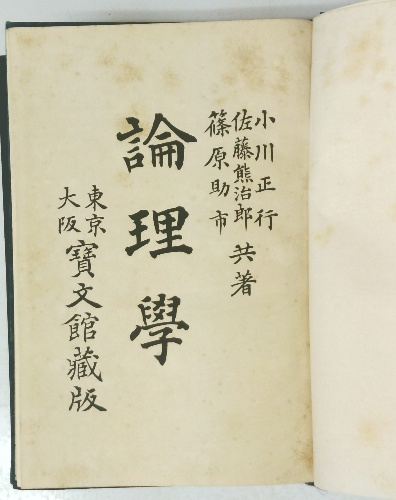 小川正行
佐藤熊治郎
篠原助市
共著
論理學
東京
大阪
寶文館藏版